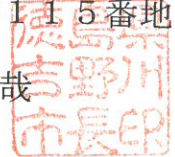 １１５番地
哉
徳島県
吉野川
市長印